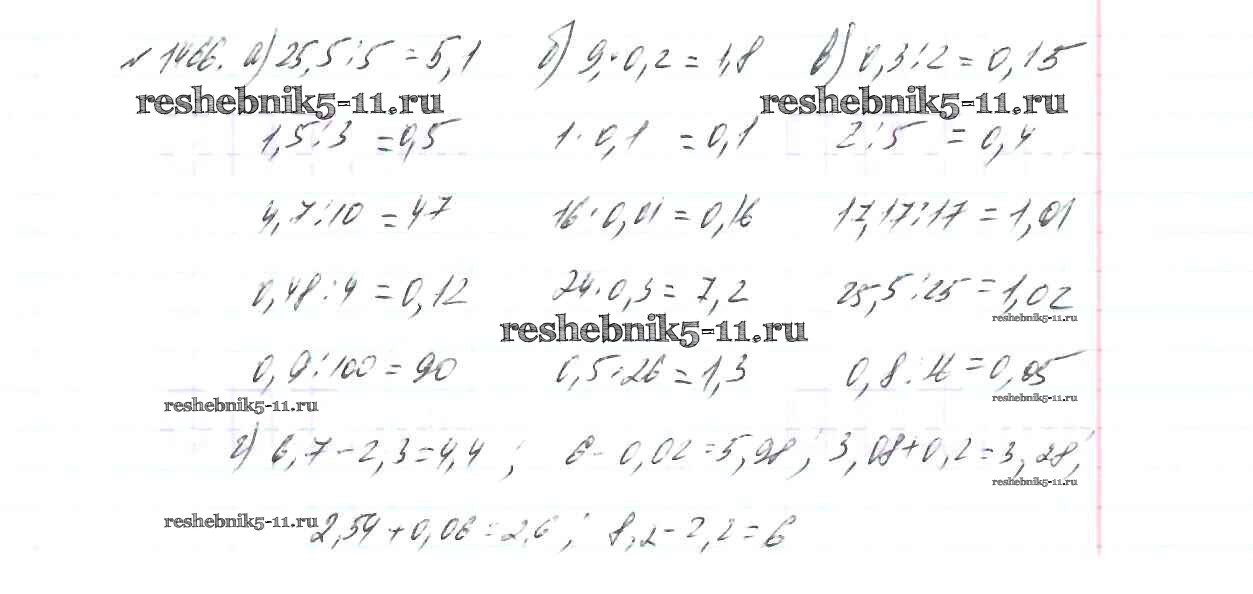 № 1466. а) 25,5:5 = 5,1 б) 9·0,2 = 1,8 в) 0,3:2 = 0,15
reshebnik5-11.ru reshebnik5-11.ru
1,5:3 = 0,5 1·0,1 = 0,1 2:5 = 0,4
4,7:10 = 47 16·0,01 = 0,16 17,17:17 = 1,01
0,48:4 = 0,12 24·0,3 = 7,2 25,5:25 = 1,02
reshebnik5-11.ru reshebnik5-11.ru
0,9:100 = 90 0,5:26 = 1,3 0,8:16 = 0,05
reshebnik5-11.ru reshebnik5-11.ru
г) 6,7 - 2,3 = 4,4 ; 6 - 0,02 = 5,98 ; 3,08 + 0,2 = 3,28;
reshebnik5-11.ru
reshebnik5-11.ru 2,54 + 0,06 = 2,6 ; 8,2 - 2,2 = 6